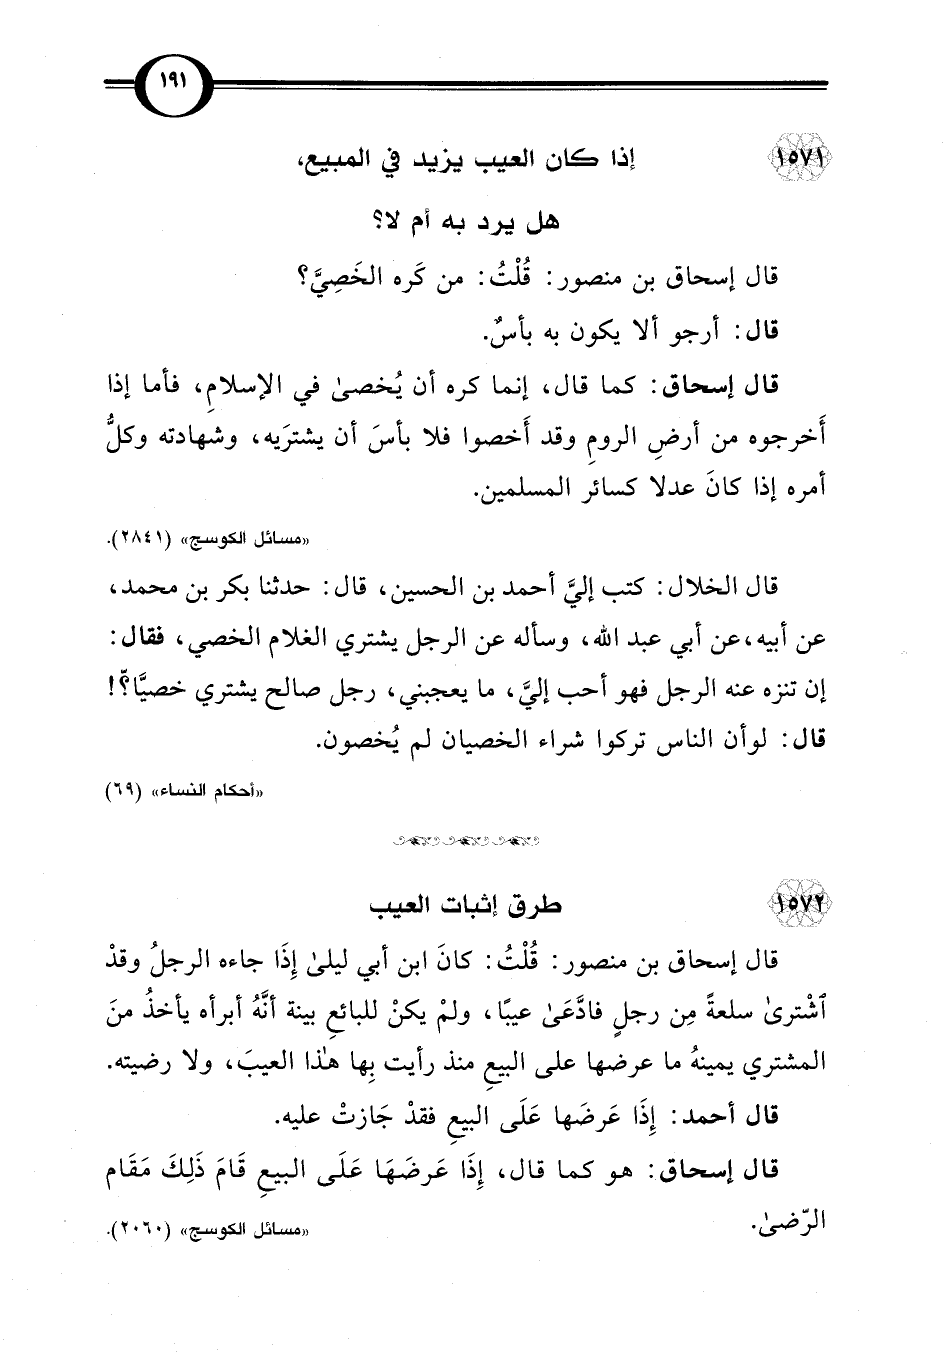 ١٩١
١٥٧١
إذا كان العيب يزيد في المبيع،
هل يرد به أم لا؟
قال إسحاق بن منصور: قُلْتُ: من كَره الخَصِيَّ؟
قال: أرجو ألا يكون به بأسٌ.
قال إسحاق: كما قال، إنما كره أن يُخصىٰ في الإسلامِ، فأما إذا
أَخرجوه من أرضِ الرومِ وقد أَخصوا فلا بأسَ أن يشتَريه، وشهادته وكلُّ
أمره إذا كانَ عدلا كسائر المسلمين.
«مسائل الكوسج» (٢٨٤١).
قال الخلال: كتب إليَّ أحمد بن الحسين، قال: حدثنا بكر بن محمد،
عن أبيه، عن أبي عبد الله، وسأله عن الرجل يشتري الغلام الخصي، فقال:
إن تنزه عنه الرجل فهو أحب إليَّ، ما يعجبني، رجل صالح يشتري خصيًّا؟!
قال: لوأن الناس تركوا شراء الخصيان لم يُخصون.
«أحكام النساء» (٦٩)
١٥٧٢
طرق إثبات العيب
قال إسحاق بن منصور: قُلْتُ: كانَ ابن أبي ليلىٰ إِذَا جاءه الرجلُ وقدْ
ٱشْترىٰ سلعةً مِن رجلٍ فادَّعَىٰ عيبًا، ولمْ يكنْ للبائعِ بينة أنَّهُ أبرأه يأخذُ منَ
المشتري يمينهُ ما عرضها على البيعِ منذ رأيت بِها هٰذا العيبَ، ولا رضيته.
قال أحمد: إِذَا عَرضَها عَلَى البيعِ فقدْ جَازتْ عليه.
قال إسحاق: هو كما قال، إِذَا عَرضَهَا عَلَى البيعِ قَامَ ذَلِكَ مَقَام
الرّضىٰ.
«مسائل الكوسج» (٢٠٦٠).